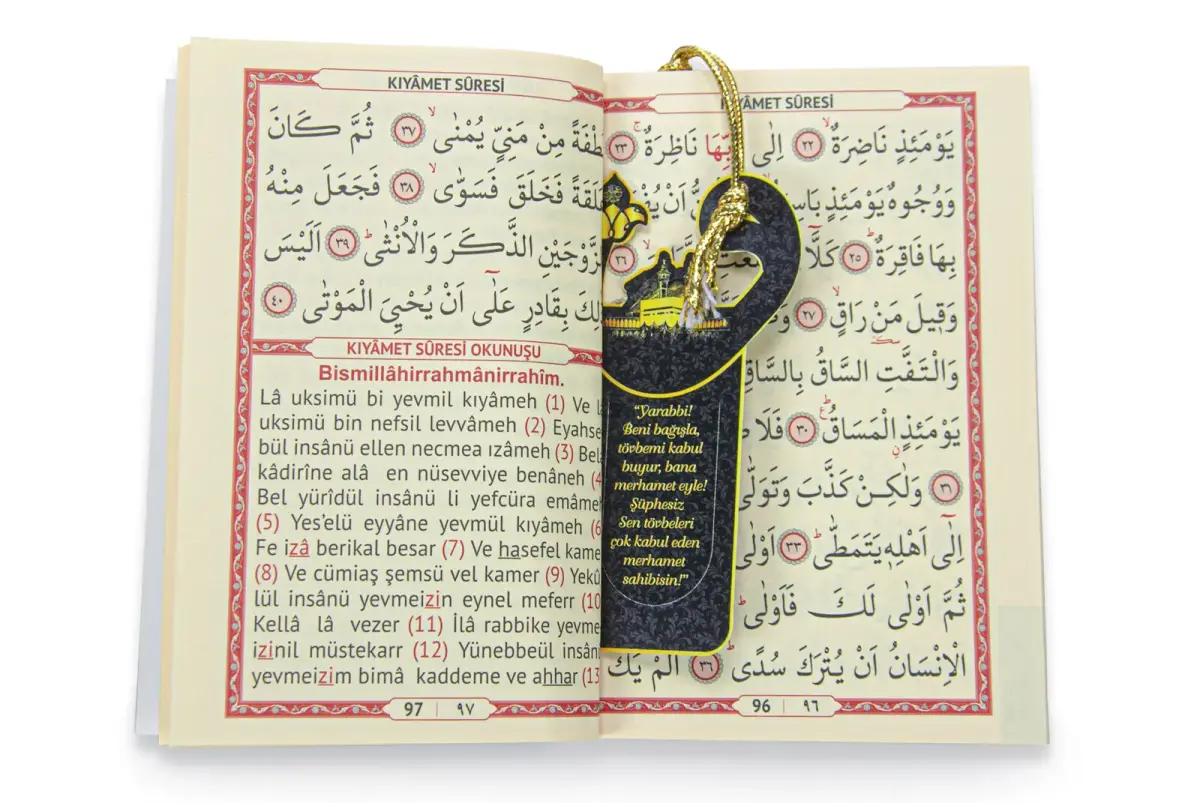 KIYÂMET SÛRESİ
يَوْمَئِذٍ نَاضِرَةٌۙ ﴿٢٢﴾ اِلٰى رَبِّهَا نَاظِرَةٌۚ ﴿٢٣﴾
وَوُجُوهٌ يَوْمَئِذٍ اَنْ
بِهَا فَاقِرَةٌۜ ﴿٢٥﴾ كَلَّٓا ﴿٢٦﴾
وَقِيلَ مَنْ رَاقٍۙ ﴿٢٧﴾
وَالْتَفَّتِ السَّاقُ بِالسَّاقِ
يَوْمَئِذٍ الْمَسَاقُۜ ﴿٣٠﴾ فَلَا
﴿٣١﴾ وَلٰكِنْ كَذَّبَ وَتَوَلّٰى
اِلٰٓى اَهْلِهِ يَتَمَطّٰىۜ ﴿٣٣﴾ اَوْلٰى
ثُمَّ اَوْلٰى لَكَ فَاَوْلٰىۜ
الْاِنْسَانُ اَنْ يُتْرَكَ سُدًىۜ ﴿٣٦﴾ اَلَمْ يَكُ
96 | ٩٦
“Yarabbi!
Beni bağışla,
tövbemi kabul
buyur, bana
merhamet eyle!
Şüphesiz
Sen tövbeleri
çok kabul eden
merhamet
sahibisin!”
KIYÂMET SÛRESİ
نُطْفَةً مِنْ مَنِيٍّ يُمْنٰىۙ ﴿٣٧﴾ ثُمَّ كَانَ
عَلَقَةً فَخَلَقَ فَسَوّٰىۙ ﴿٣٨﴾ فَجَعَلَ مِنْهُ
الزَّوْجَيْنِ الذَّكَرَ وَالْاُنْثٰىۜ ﴿٣٩﴾ اَلَيْسَ
ذٰلِكَ بِقَادِرٍ عَلٰٓى اَنْ يُحْيِيَ الْمَوْتٰى ﴿٤٠﴾
KIYÂMET SÛRESİ OKUNUŞU
Bismillâhirrahmânirrahîm.
Lâ uksimü bi yevmil kıyâmeh (1) Ve l
uksimü bin nefsil levvâmeh (2) Eyahse
bül insânü ellen necmea ızâmeh (3) Bel
kâdirîne alâ en nüsevviye benâneh (4
Bel yürîdül insânü li yefcüra emâmeh
(5) Yes’elü eyyâne yevmül kıyâmeh (6
Fe izâ berikal besar (7) Ve hasefel kame
(8) Ve cümiaş şemsü vel kamer (9) Yekû
lül insânü yevmeizin eynel meferr (10
Kellâ lâ vezer (11) İlâ rabbike yevme
izinil müstekarr (12) Yünebbeül insân
yevmeizim bimâ kaddeme ve ahhar (13
97 | ٩٧